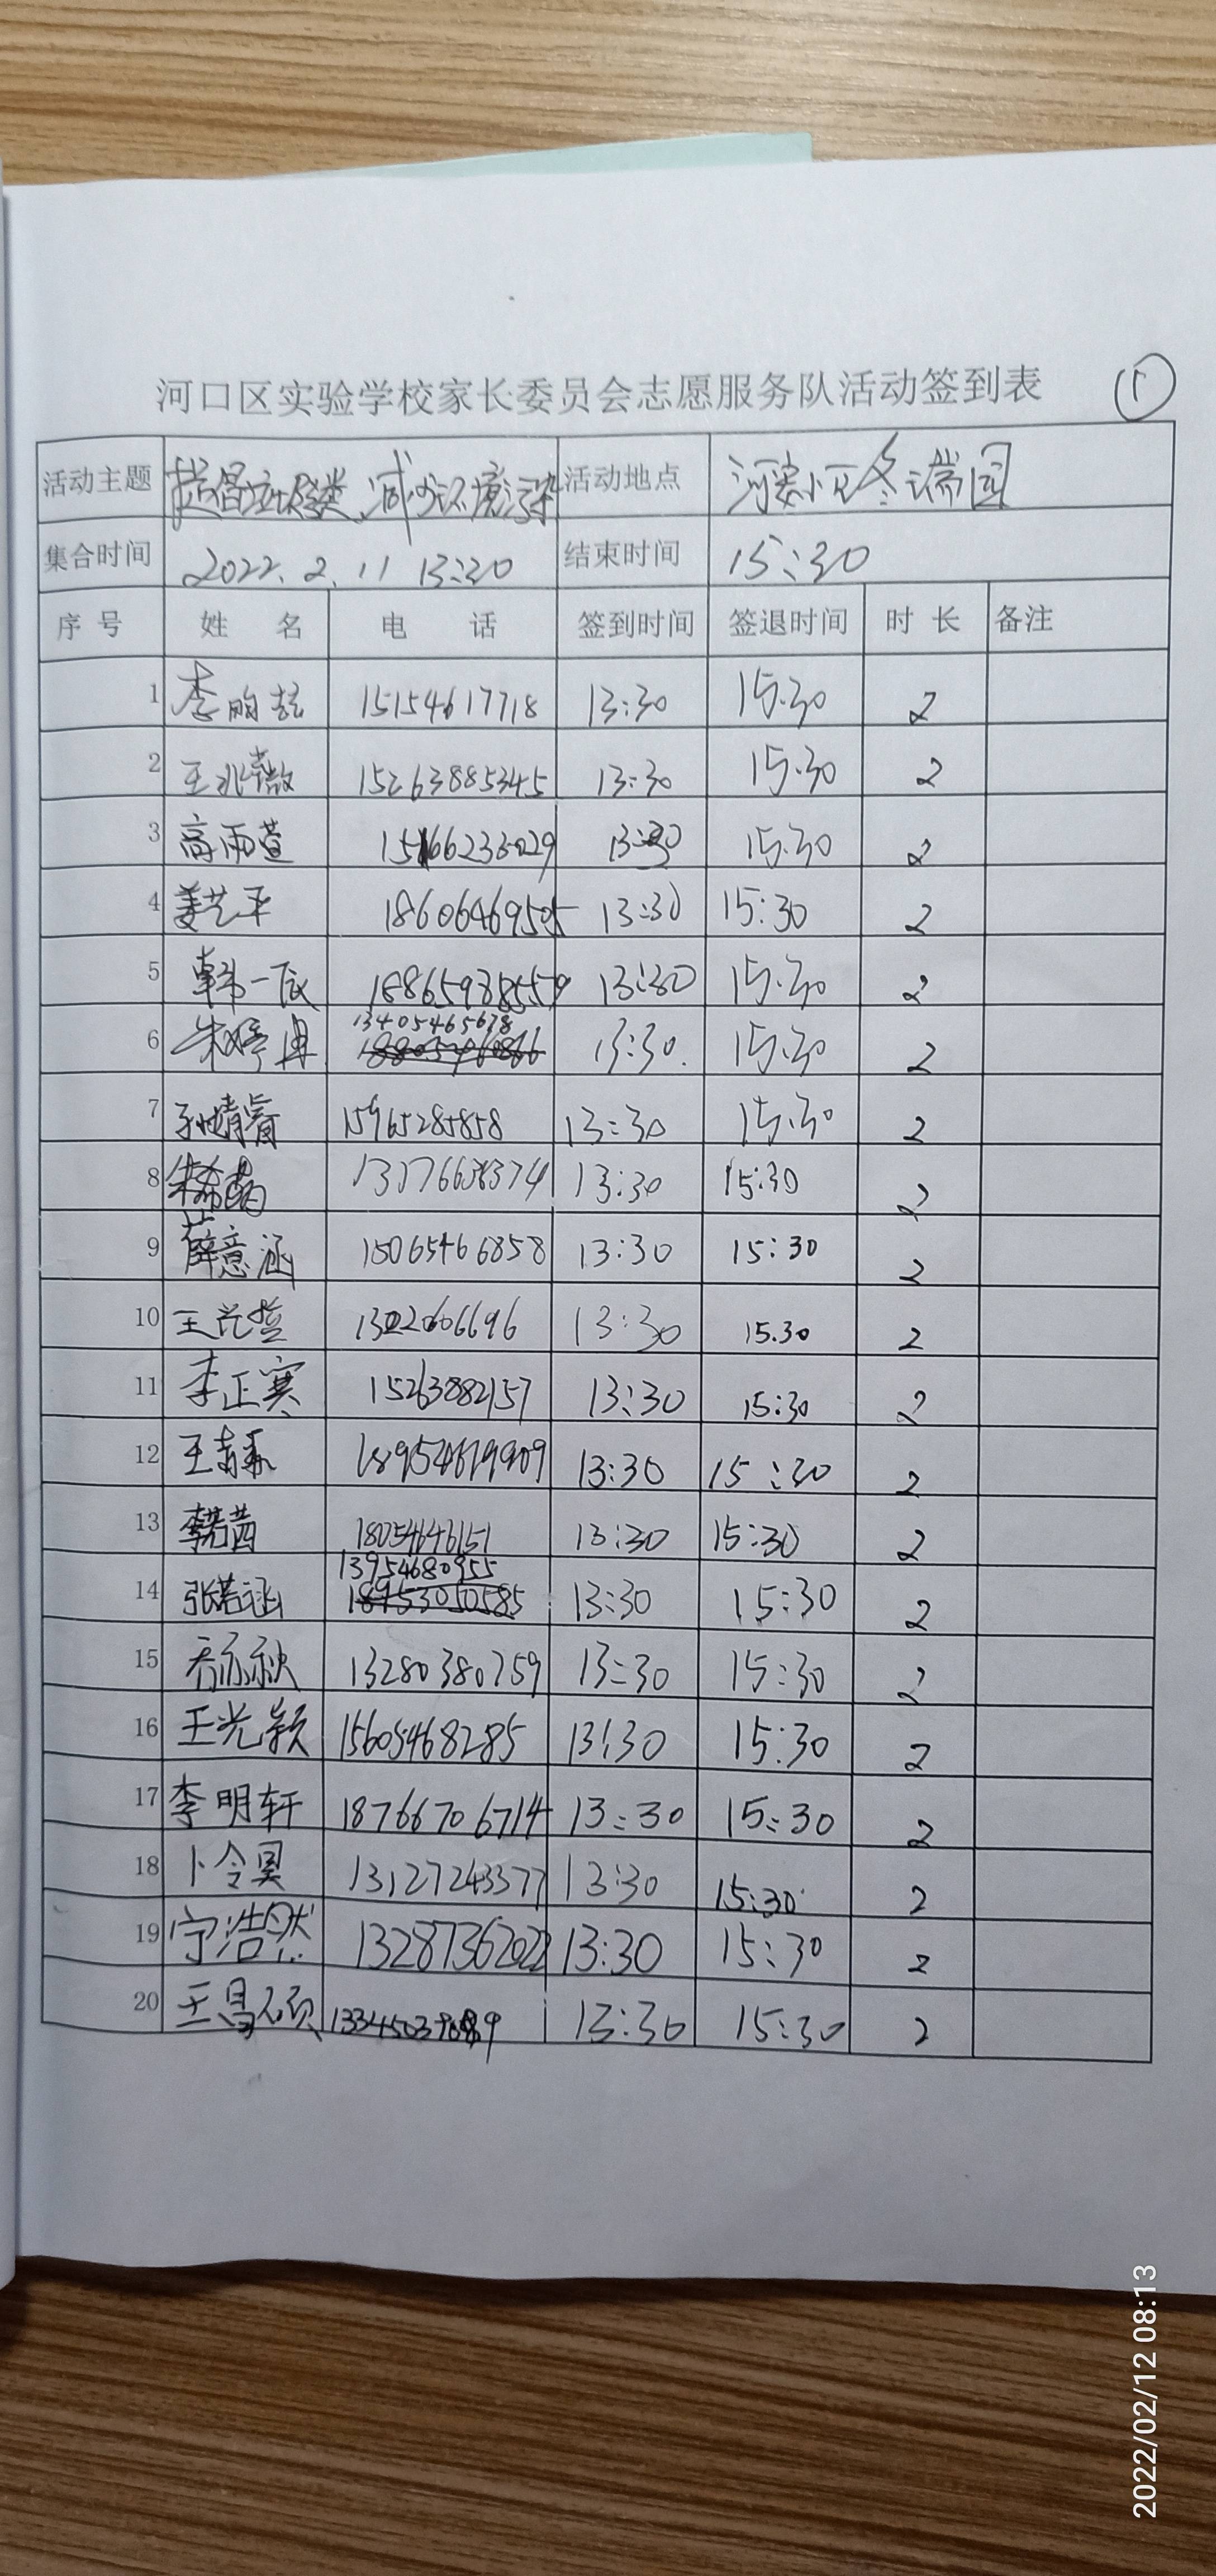 河口区实验学校家长委员会志愿服务队活动签到表 ①
活动主题 提倡垃圾分类,减少环境污染 活动地点
集合时间 2022.2.11 13:30 结束时间 15:30
序号 姓名 电话 签到时间 签退时间 时长 备注
1 李 15154617718 13:30 15:30 2
2 王兆 15263885345 13:30 15:30 2
3 高雨萱 13:30 15:30 2
4 姜艺平 18606469505 13:30 15:30 2
5 韩一辰 18865938559 13:30 15:30 2
6 朱 13405465678 13:30 15:30 2
7 孙婧睿 15965285858 13:30 15:30 2
8 朱希菡 13:30 15:30 2
9 薛意涵 15065466858 13:30 15:30 2
10 王 13:30 15.30 2
11 李正寰 15263882157 13:30 15:30 2
12 王 18954679909 13:30 15:30 2
13 李若茜 18054646151 13:30 15:30 2
14 张若涵 13954680955 13:30 15:30 2
15 乔亦秋 13280380759 13:30 15:30 2
16 王光颖 15605468285 13:30 15:30 2
17 李明轩 18766706714 13:30 15:30 2
18 卜令昊 13127243377 13:30 15:30 2
19 宁浩然 13287362022 13:30 15:30 2
20 王昌硕 13:30 15:30 2
2022/02/12 08:13